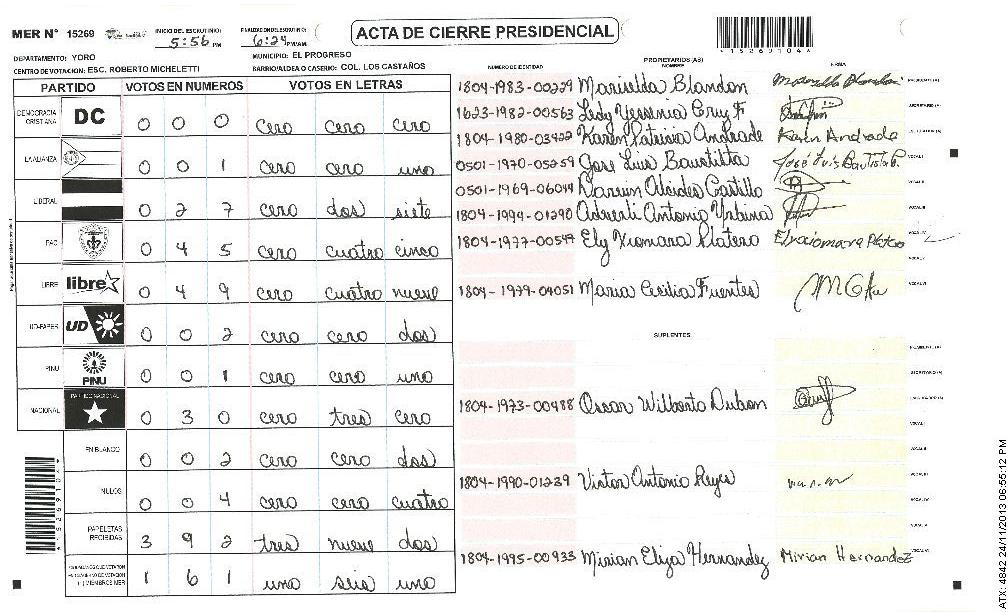 MER N° 15269 INICIO DEL ESCRUTINIO: 5:56 PM FINALIZACION DEL ESCRUTINIO: 6:24 PM/AM. ACTA DE CIERRE PRESIDENCIAL *15269104*
DEPARTAMENTO: YORO MUNICIPIO: EL PROGRESO
CENTRO DE VOTACION: ESC. ROBERTO MICHELETTI BARRIO/ALDEA O CASERIO: COL. LOS CASTAÑOS
PARTIDO VOTOS EN NUMEROS VOTOS EN LETRAS
DEMOCRACIA CRISTIANA DC 0 0 0 cero cero cero
LA ALIANZA 0 0 1 cero cero uno
LIBERAL 0 2 7 cero dos siete
PAC 0 4 5 cero cuatro cinco
LIBRE libre 0 4 9 cero cuatro nueve
UD-FAPER UD 0 0 2 cero cero dos
PINU PINU 0 0 1 cero cero uno
NACIONAL PARTIDO NACIONAL 0 3 0 cero tres cero
EN BLANCO 0 0 2 cero cero dos
NULOS 0 0 4 cero cero cuatro
PAPELETAS RECIBIDAS 3 9 2 tres nueve dos
CIUDADANOS QUE VOTARON 1 6 1 uno seis uno
MIEMBROS MER
PROPIETARIOS (AS)
NUMERO DE IDENTIDAD NOMBRE FIRMA
1804-1983-00229 Mariselda Blandon PRESIDENTE (A)
1623-1982-00563 Lesly Yessenia Cruz F SECRETARIO (A)
1804-1980-03422 Karen Patricia Andrade Karen Andrade ESCRUTADOR (A)
0501-1970-05259 Jose Luis Bautista José Luis Bautista B. VOCAL I
0501-1969-06044 Alcides Castillo VOCAL II
1804-1994-01290 Antonio Urbina VOCAL III
1804-1977-00547 Ely Xiomara Platero VOCAL IV
VOCAL V
1804-1979-04051 Maria Cecilia Fuentes VOCAL VI
SUPLENTES
PRESIDENTE (A)
SECRETARIO (A)
1804-1973-00488 Oscar Wilberto Dubon ESCRUTADOR (A)
VOCAL I
VOCAL II
1804-1990-01239 Victor Antonio Reyes VOCAL III
VOCAL IV
VOCAL V
1804-1995-00933 Mirian Eliza Hernandez Mirian Hernandez VOCAL VI
ATX: 4842 24/11/2013 06:55:12 PM